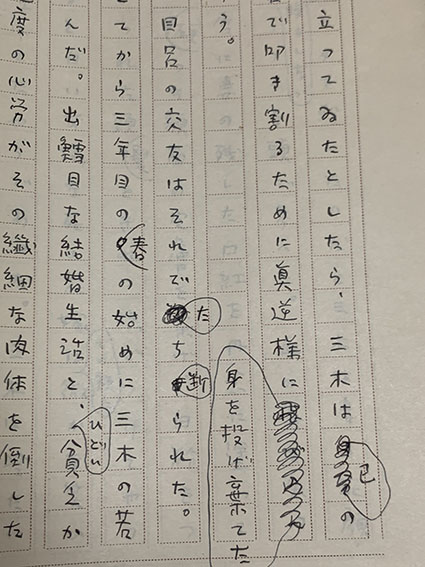 立ってゐたとしたら、三木は己の
で叩き割るために眞逆様に
身を投げ棄てた
う。
目呂の交友はそれでたち断られた。
てから三年目の春の始めに三木の若
んだ。出鱈目な結婚生活と、ひどい貧乏か
度の心労がその纖細な肉体を倒した